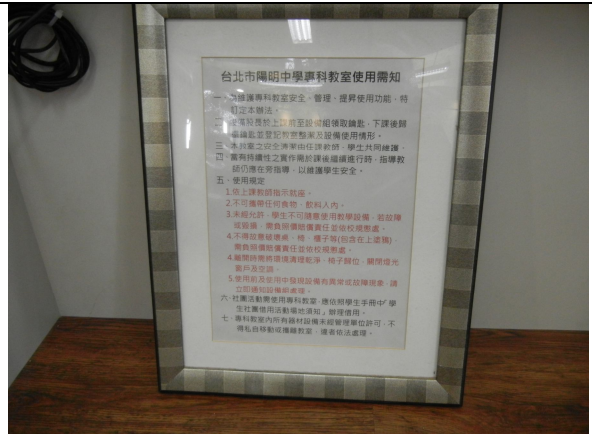 台北市陽明中學專科教室使用需知
一、為維護專科教室安全、管理、提昇使用功能,特
訂定本辦法。
長於上課前至設備組領取鑰匙,下課後歸
還鑰匙並登記教室整潔及設備使用情形。
三、本教室之安全清潔由任課教師、學生共同維護。
四、當有持續性之實作需於課後繼續進行時,指導教
師仍應在旁指導,以維護學生安全。
五、使用規定
1.依上課教師指示就座。
2.不可攜帶任何食物、飲料入內。
3.未經允許,學生不可隨意使用教學設備,若故障
或毀損,需負照價賠償責任並依校規懲處。
4.不得故意破壞桌、椅、櫃子等(包含在上塗鴉),
需負照價賠償責任並依校規懲處。
4.離開時需將環境清理乾淨、椅子歸位、關閉燈光
窗戶及空調。
5.使用前及使用中發現設備有異常或故障現象,請
立即通知設備組處理。
六、社團活動需使用專科教室,應依照學生手冊中「學
生社團借用活動場地須知」辦理借用。
七、專科教室內所有器材設備未經管理單位許可,不
得私自移動或攜離教室,違者依法處理。